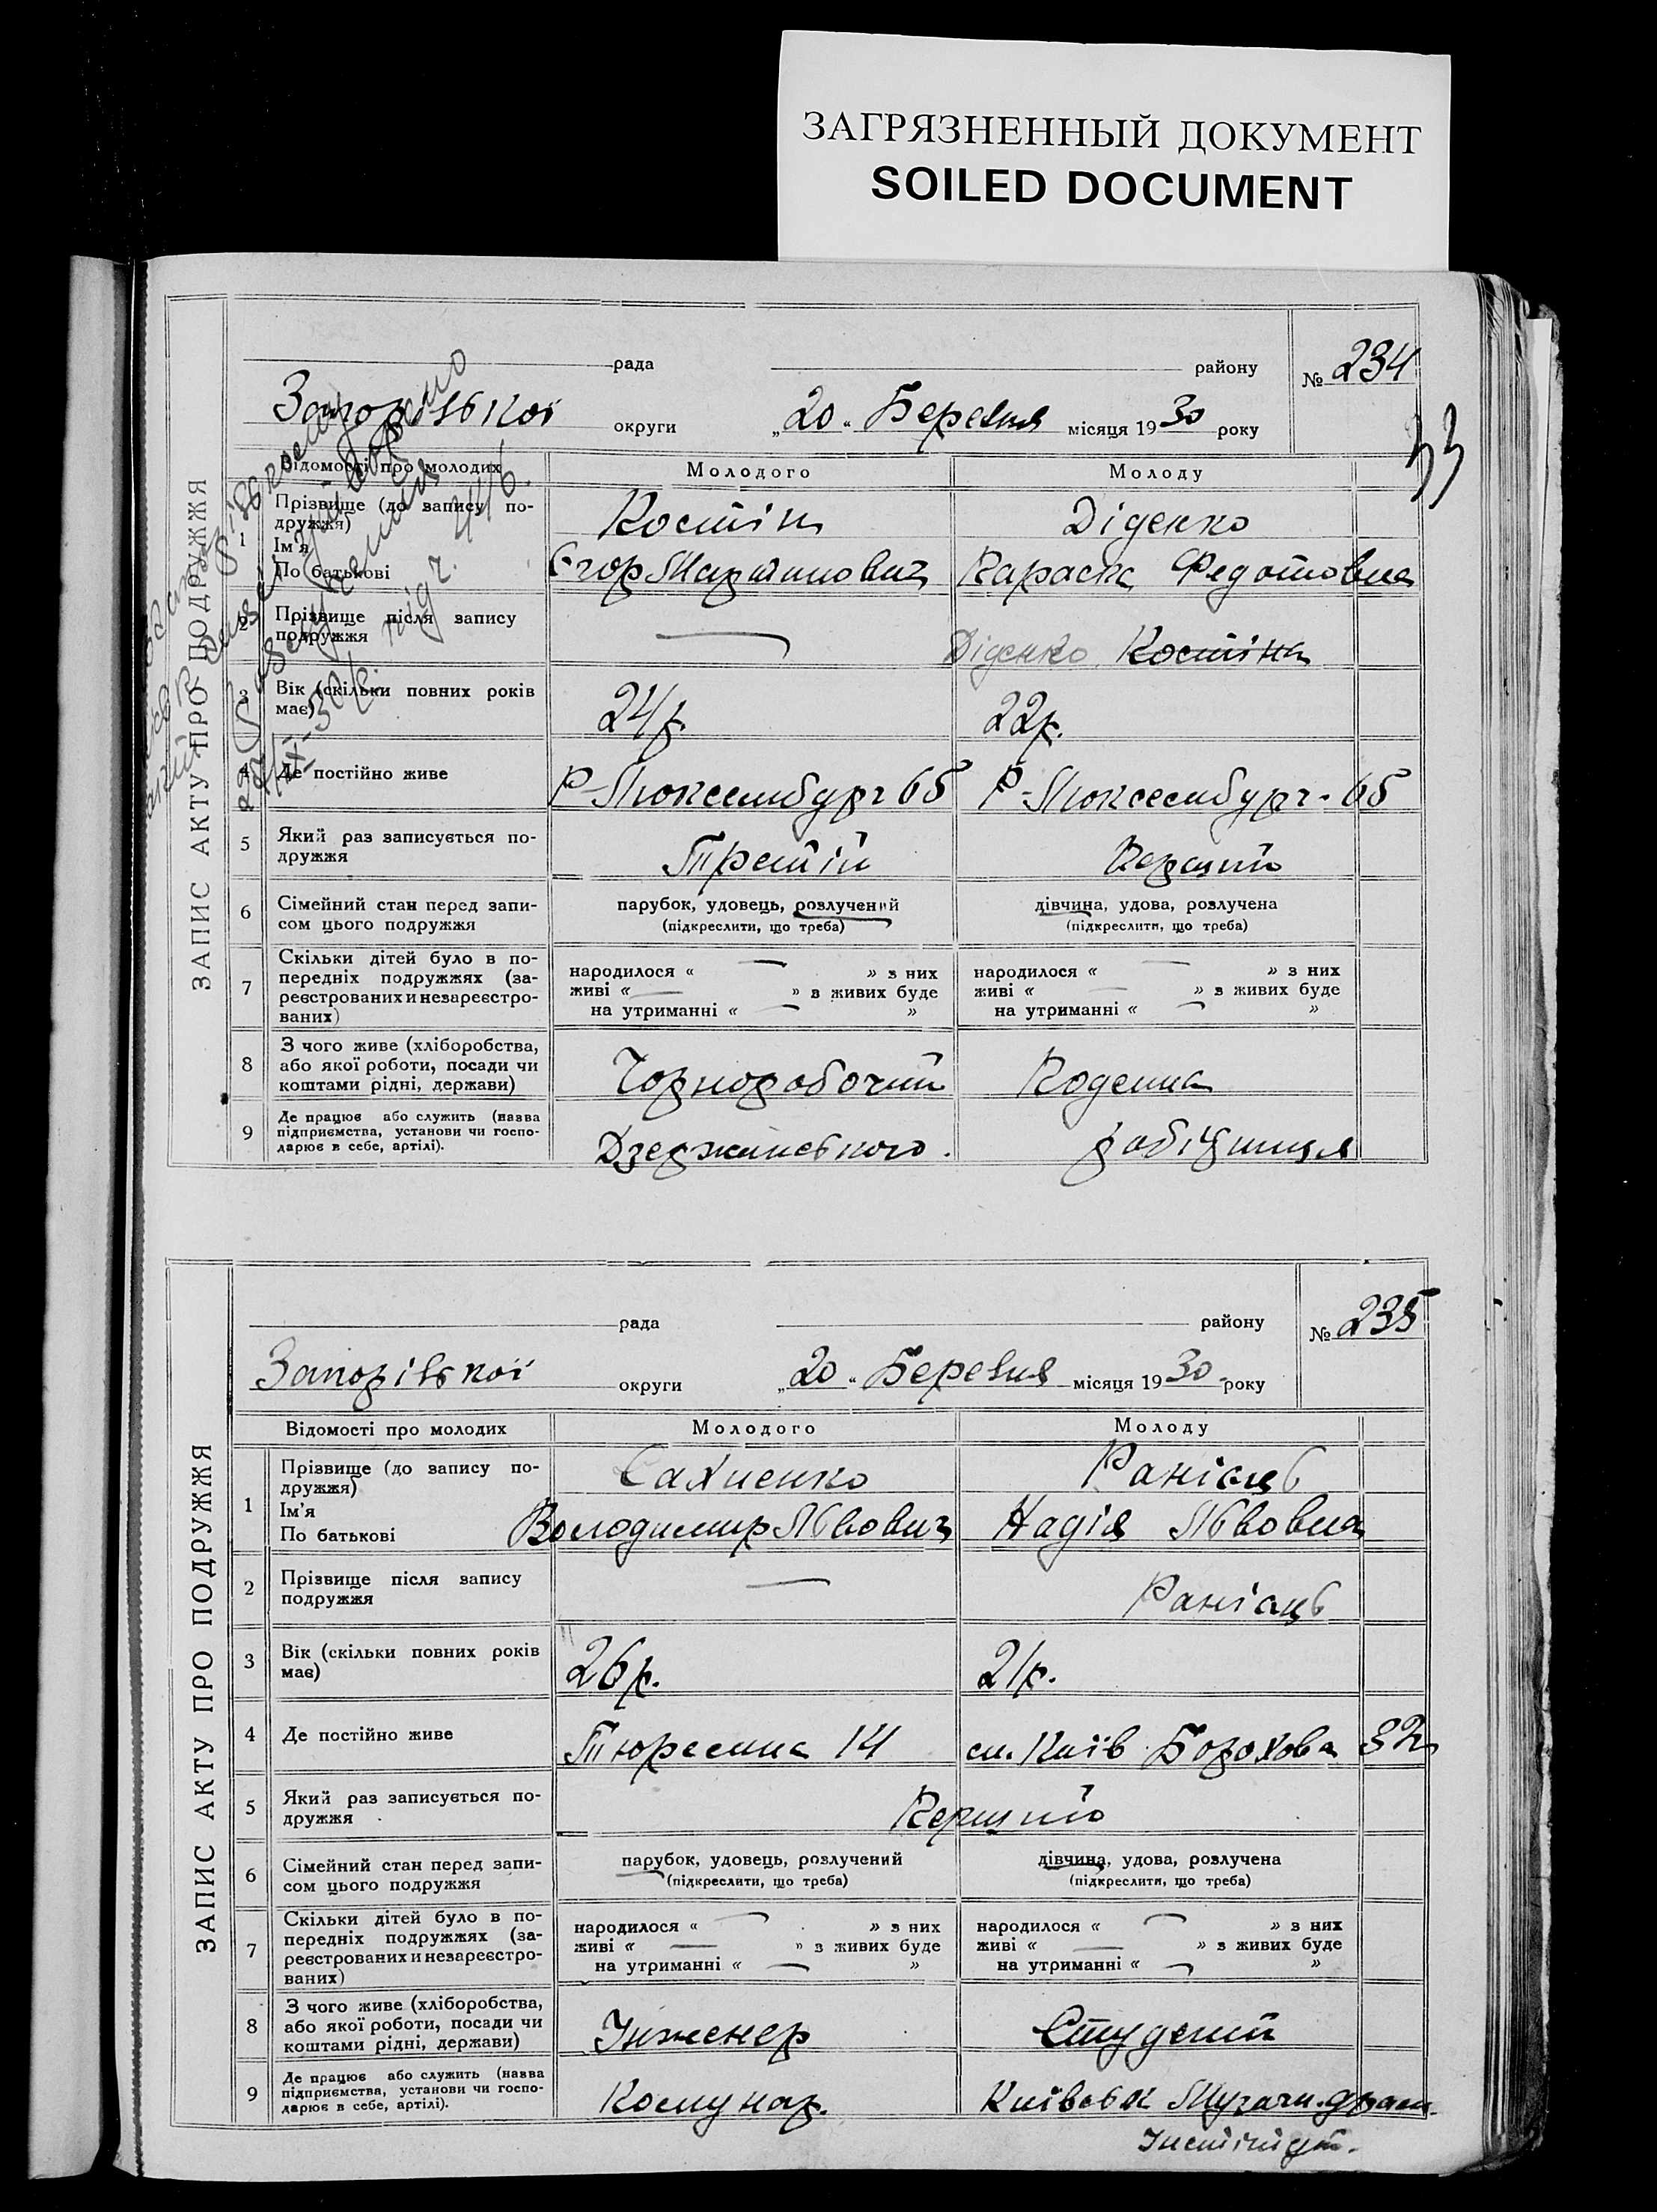 ЗАГРЯЗНЕННЫЙ ДОКУМЕНТ
SOILED DOCUMENT
33
ЗАПИС АКТУ ПРО ПОДРУЖЖЯ
рада району № 234
Запорізької округи „20“ Березня місяця 1930 року
Відомості про молодих Молодого Молоду
1 Прізвище (до запису по-
дружжя) Костін Діденко
Ім'я
По батькові Єгор Мартинович Параска Федотовна
2 Прізвище після запису
подружжя — Діденко Костіна
3 Вік (скільки повних років
має) 24 р. 22 р.
4 Де постійно живе Р-Люксембург 65 Р-Люксембург - 65
5 Який раз записується по-
дружжя Третій Перший
6 Сімейний стан перед запи-
сом цього подружжя
парубок, удовець, розлучений дівчина, удова, розлучена
(підкреслити, що треба) (підкреслити, що треба)
7 Скільки дітей було в по-
передніх подружжях (за-
реєстрованих и незареєстро-
ваних)
народилося « — » з них народилося « — » з них
живі « — » в живих буде живі « — » в живих буде
на утриманні « — » на утриманні « — »
8 З чого живе (хліборобства,
або якої роботи, посади чи
коштами рідні, держави) Чорноробочий Поденна
9 Де працює або служить (назва
підприємства, установи чи госпо-
дарює в себе, артілі). Дзержинського. робітниця
ЗАПИС АКТУ ПРО ПОДРУЖЖЯ
рада району № 235
Запорізької округи „20“ Березня місяця 1930 року
Відомості про молодих Молодого Молоду
1 Прізвище (до запису по-
дружжя) Сахненко
Ім'я
По батькові Володимир Львович Надія Львовна
2 Прізвище після запису
подружжя —
3 Вік (скільки повних років
має) 26 р. 21 р.
4 Де постійно живе 14 м. Київ Борохова
5 Який раз записується по-
дружжя Перший
6 Сімейний стан перед запи-
сом цього подружжя
парубок, удовець, розлучений дівчина, удова, розлучена
(підкреслити, що треба) (підкреслити, що треба)
7 Скільки дітей було в по-
передніх подружжях (за-
реєстрованих и незареєстро-
ваних)
народилося « — » з них народилося « — » з них
живі « — » з живих буде живі « — » з живих буде
на утриманні « — » на утриманні « — »
8 З чого живе (хліборобства,
або якої роботи, посади чи
коштами рідні, держави) Інженер Студент
9 Де працює або служить (назва
підприємства, установи чи госпо-
дарює в себе, артілі). Комунар. Київськ Музични. драм.
Інститут.